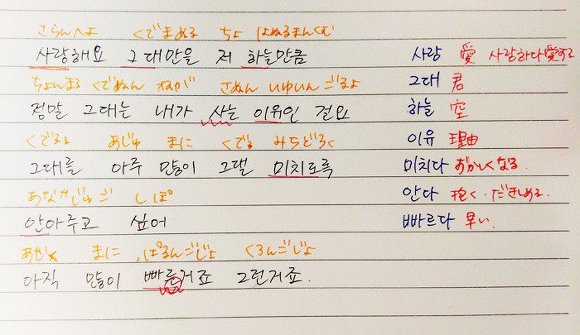 さらんへよ くでまぬる ちょ はぬるまんくむ
사랑해요 그대만을 저 하늘만큼
사랑 愛 사랑하다 愛する
ちょんまる くでぬん ねが さぬん いゆいん ごるよ
그대 君
정말 그대는 내가 사는 이유인 걸요
하늘 空
くでるる あじゅ まに くでる みちどろく
이유 理由
그대를 아주 많이 그댈 미치도록
미치다 おかしくなる
あなじゅご しぽ
안다 抱く・だきしめる
안아주고 싶어
빠르다 早い
あじく まに ぱるんごじょ くろんごじょ
아직 많이 빠른거죠 그런거죠.